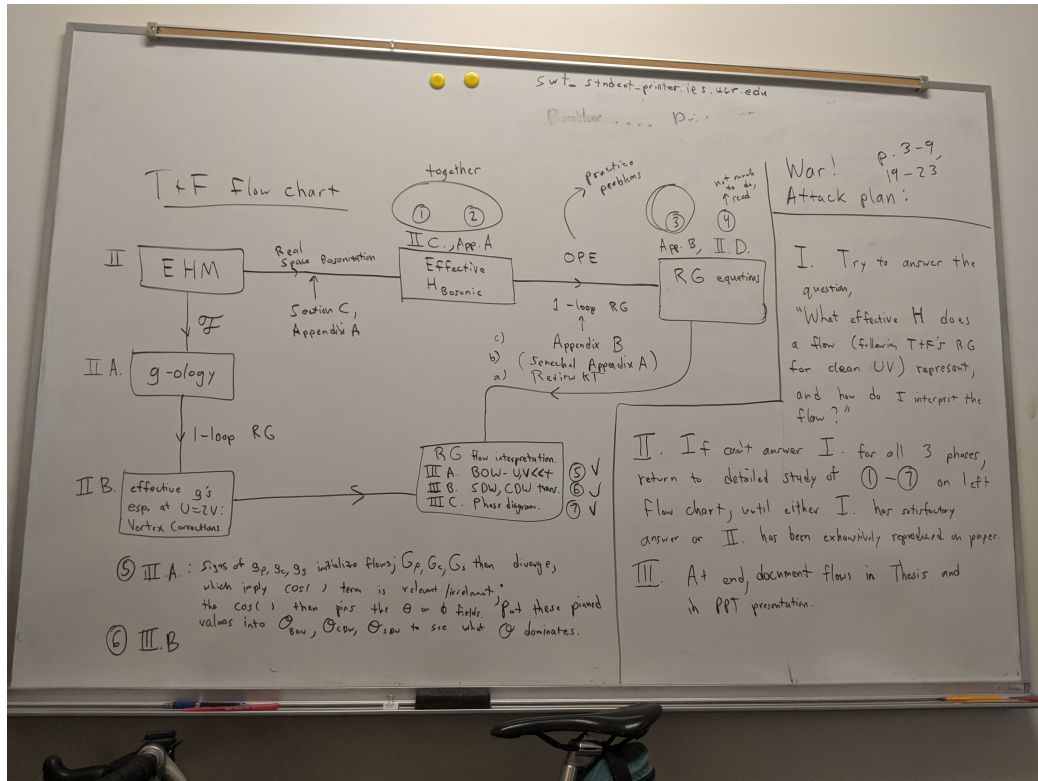 swt_student_printer.ies.ucr.edu
T+F flow chart
together
① ②
II C., App. A
practice problems
③
not much to do, read
④
App. B, II. D.
II
EHM
Real Space Bosonization
Section C,
Appendix A
Effective
H Bosonic
OPE
1-loop RG
RG equations
c) Appendix B
b) (Senechal Appendix A)
a) Review KT
F
II A.
g-ology
1-loop RG
II B.
effective g's
esp. at U=2V:
Vertex Corrections
RG flow interpretation.
III A. BOW - U,V<<t ⑤ ✓
III B. SDW, CDW trans. ⑥ ✓
III C. Phase diagram. ⑦ ✓
⑤ III.A.: Signs of gρ, gc, gs initialize flows; Gρ, Gc, Gs then diverge,
which imply cos( ) term is relevant/irrelevant;
the cos( ) then pins the θ or ϕ fields. Put these pinned
values into O BOW, O CDW, O SDW to see what O dominates.
⑥ III.B
War!
Attack plan:
p. 3-9,
19-23
I. Try to answer the
question,
"What effective H does
a flow (following T+F's RG
for clean UV) represent,
and how do I interpret the
flow?"
II. If can't answer I. for all 3 phases,
return to detailed study of ①-⑦ on left
flow chart, until either I. has satisfactory
answer or II. has been exhaustively reproduced on paper.
III. At end, document flows in Thesis and
in PPT presentation.